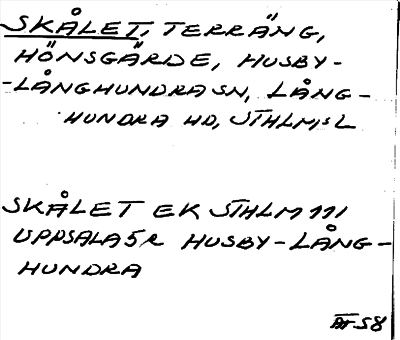 SKÅLET, TERRÄNG,
HÖNSGÄRDE, HUSBY-
-LÅNGHUNDRA SN, LÅNG-
HUNDRA HD, STHLM:S L
SKÅLET EK STHLM 111
UPPSALA 5R HUSBY-LÅNG-
HUNDRA
58